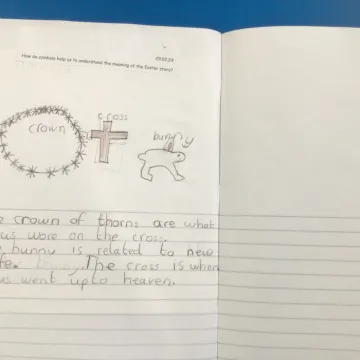 03.03.24
How do symbols help us to understand the meaning of the Easter story?
cross
crown
bunny
crown of thorns are what
us wore on the cross.
bunny is related to new
fe. The cross is when
us went upto heaven.